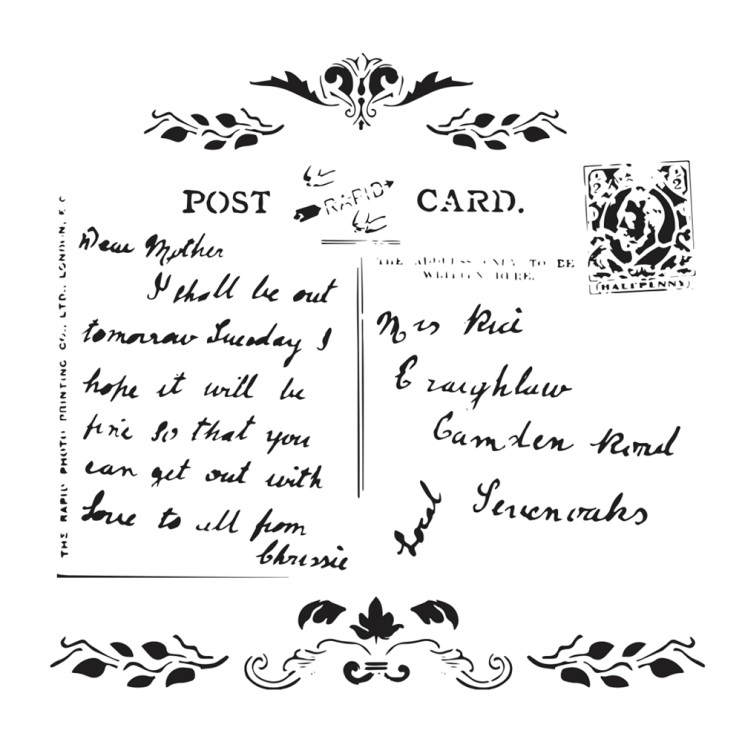 POST RAPID CARD.
THE ADDRESS ONLY TO BE
WRITTEN HERE.
1/2 1/2
HALFPENNY
THE RAPID PHOTO PRINTING CO., LTD., LONDON, E.C
Dear Mother
I shall be out
tomorrow Tuesday I
hope it will be
fine so that you
can get out with
Love to all from
Chrissie
Mrs Rice
Craighlaw
Camden Road
Sevenoaks
Local